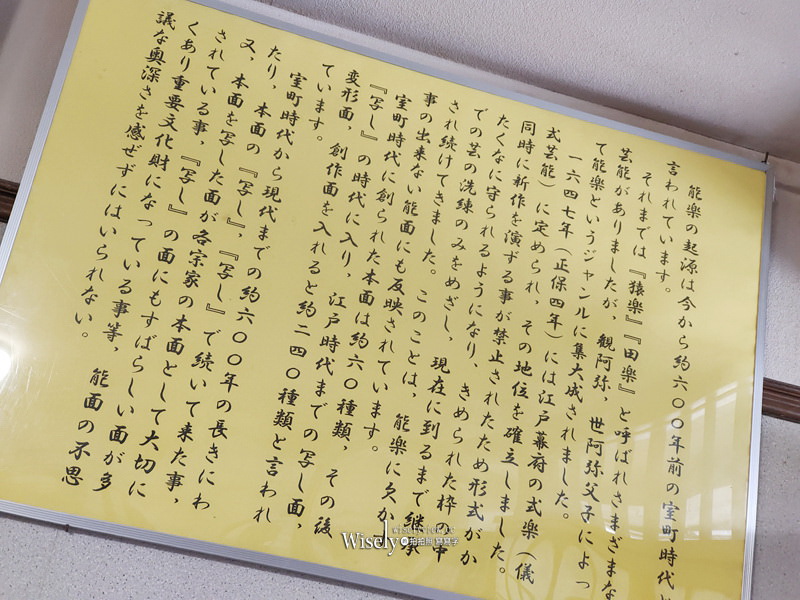 能楽の起源は今から約六〇〇年前の室町時代
言われています。
それまでは『猿楽』『田楽』と呼ばれさまざまな
芸能がありましたが、観阿弥、世阿弥父子によっ
て能楽というジャンルに集大成されました。
一六四七年（正保四年）には江戸幕府の式楽（儀
式芸能）に定められ、その地位を確立しました。
同時に新作を演ずる事が禁止されたため形式がか
たくなに守られるようになり、きめられた枠の中
での芸の洗練のみをめざし、現在に到るまで継承
され続けてきました。このことは、能楽に欠か
事の出来ない能面にも反映されています。
室町時代に創られた本面は約六〇種類、その後
『写し』の時代に入り、江戸時代までの写し面、
変形面、創作面を入れると約二四〇種類と言われ
ています。
室町時代から現代までの約六〇〇年の長きにわ
たり、本面の『写し』、『写し』で続いて来た事、
又、本面を写した面が各宗家の本面として大切に
されている事、『写し』の面にもすばらしい面が多
くあり重要文化財になっている事等、能面の不思
議な奥深さを感ぜずにはいられない。
WISELYVIEW.CC
Wisely拍拍照寫寫字